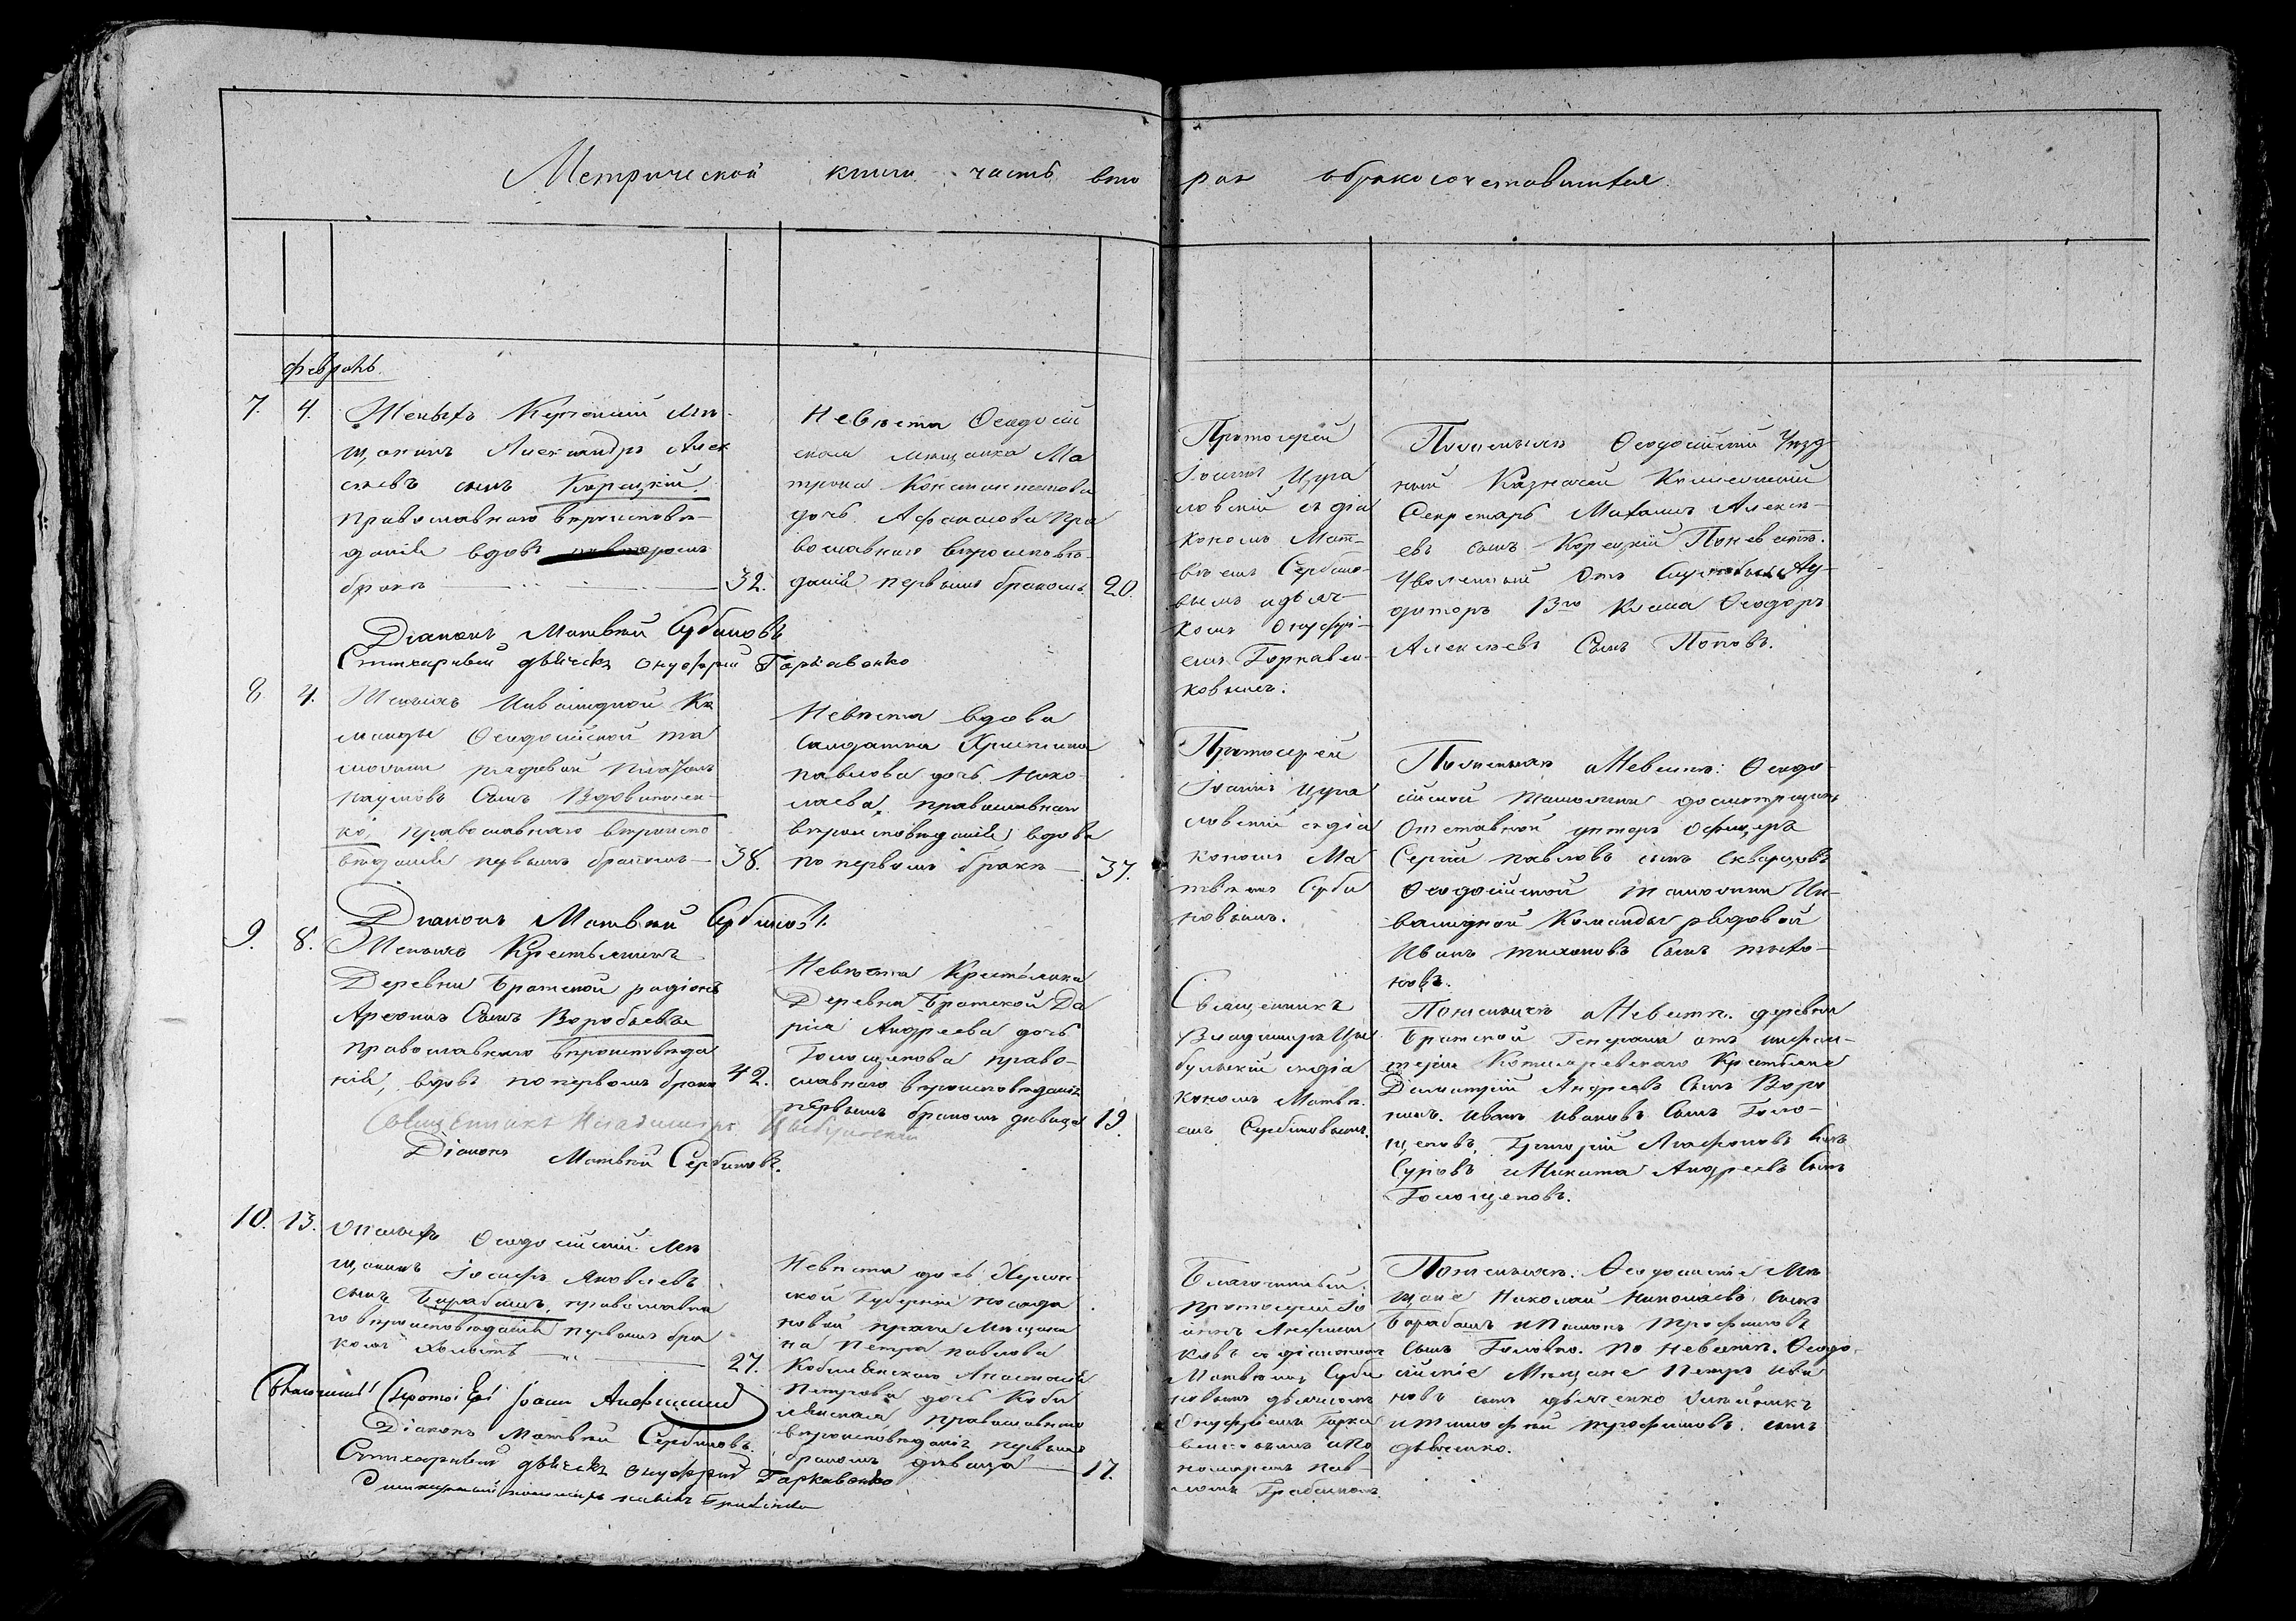 Метрической книги часть вто рая обракосочетавшихся
Февраль.
7. 4.
Женихъ Керченский мѣ-
щанинъ Александръ Алек
сѣевъ сынъ Корецкій.
православнаго вѣроисповѣ-
данія вдовъ
бракѣ 32.
Невѣста Ѳеодосій
ская мѣщанка Ма
трона Константинова
дочь Афанасова пра
вославнаго вѣроисповѣ-
данія первымъ бракомъ. 20.
Протоіерей
Іоаннъ Цура
ловскій съ діа
кономъ Мат-
вѣемъ Сербино-
вымъ и дьяч-
комъ Онуфрі-
емъ Горкавен-
ковымъ.
Поженихѣ Ѳеодосійскій Уѣзд-
ный Казначей
Секретарь Михаилъ Алексѣ-
евъ сынъ Корецкій Поневѣстѣ.
Уволенный отъ службы Ау-
диторъ 13го класса Ѳеодоръ
Алексѣевъ Сынъ Поповъ.
Діаконъ Матвѣй Сербиновъ
Стихарный дьячекъ Онуфрій Горкавенко
8 4.
Женихъ Инвалидной Ко
манды Ѳеодосійской та
можни рядовой Платонъ
Наумовъ Сынъ Вдовичен
ко, православнаго вѣроиспо
вѣданія первымъ бракомъ 38.
Невѣста вдова
Солдатка Христина
Павлова дочь Нико-
лаева, православнаго
вѣроисповѣданія вдова
по первомъ бракѣ 37.
Протоіерей
Іоаннъ Цура
ловскій съ діа
кономъ Ма
твѣемъ Серби
новымъ.
Поженихѣ и Невѣстѣ: Ѳеодо-
сійской таможни досмотрщикъ
Отставной унтеръ офицеръ
Сергій Павловъ сынъ Скварцовъ
Ѳеодосійской таможни Ин-
валидной Команды рядовой
Иванъ Тихоновъ Сынъ Тихо-
новъ.
Діаконъ Матвѣй Сербиновъ.
9. 8.
Женихъ Крестьянинъ
Деревни Братской Радіонъ
Сынъ Воробьевъ
православнаго вѣроисповѣда
нія, вдовъ по первомъ бракѣ 42.
Невѣста Крестьянка
Деревни Братской Да
рія Андреева дочь
Голощепова право-
славнаго вѣроисповѣданія
первымъ бракомъ дѣвица 19.
Священникъ
Владиміръ Цы
бульскій съ діа
кономъ Матвѣ-
емъ Сербиновымъ.
Поженихѣ и Невѣстѣ. деревни
Братской Генерала отъ инфан-
теріи Котляревскаго Крестьяне
Димитрій Андреевъ Сынъ Воро
нинъ. Иванъ Ивановъ Сынъ Голо-
щеповъ, Григорій Сынъ
Суровъ и Никита Андреевъ Сынъ
Голощеповъ.
Священникъ Владиміръ Цыбульскій
Діаконъ Матвѣй Сербиновъ.
10. 13.
Женихъ Ѳеодосійскій мѣ
щанинъ Іосифъ Яковлевъ
сынъ Барабашъ, православна
го вѣроисповѣданія первымъ бра
комъ холостъ 27.
Невѣста дочь Херсон-
ской Губерніи посада
новой праги мѣщани
на Петра Павлова
Кобилянскаго Анастасія
Петрова дочь Коби
лянская православнаго
вѣроисповѣданія первымъ
бракомъ дѣвица 17.
Благочинный
протоіерей Іо
аннъ
съ діакономъ
Матвѣемъ Серби
новымъ дьячкомъ
Онуфріемъ Горка
венковымъ и по
номаремъ Пав-
ломъ
Поженихѣ: Ѳеодосійскіе Мѣ
щане Николай Николаевъ Сынъ
Барабашъ и Пименъ Трофимовъ
Сынъ Головко. По Невѣстѣ. Ѳеодо-
сійскіе Мѣщане Петръ Ива
новъ сынъ
и Тимофей Трофимовъ сынъ
Благочинный Протоіерей Іоаннъ
Діаконъ Матвѣй Сербиновъ.
Стихарный дьячекъ Онуфрій Горкавенко
Стихарный пономарь Павелъ